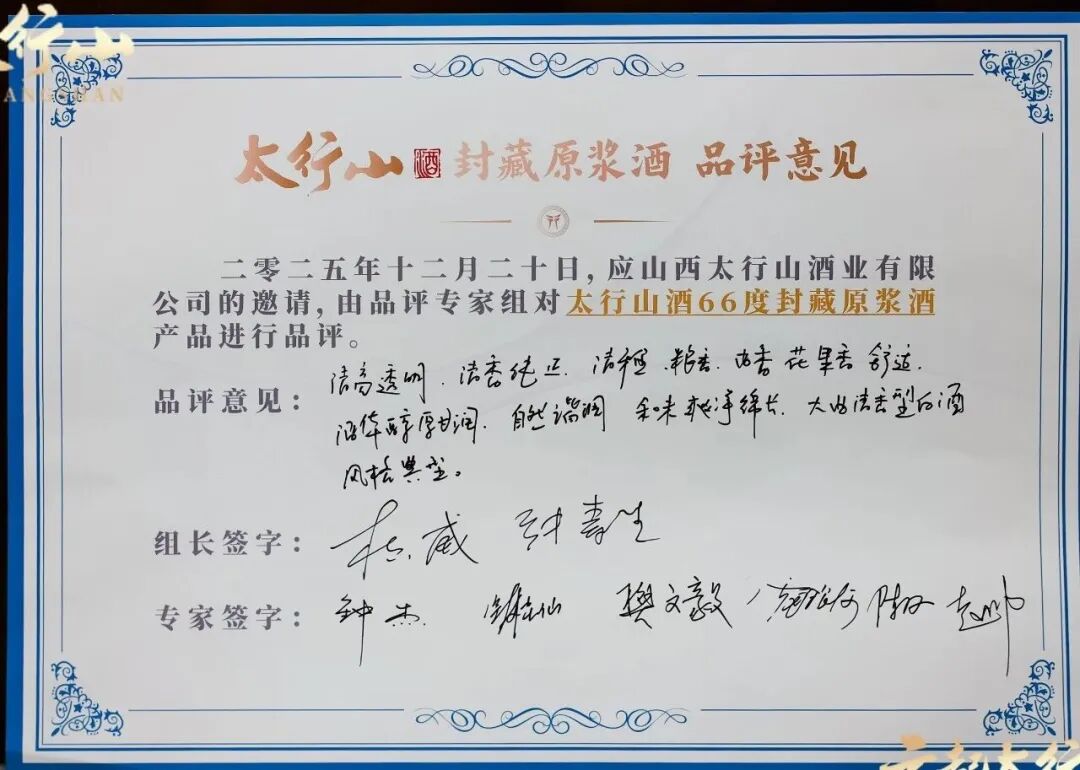 行山
太行山 酒 封藏原浆酒 品评意见
二零二五年十二月二十日,应山西太行山酒业有限
公司的邀请,由品评专家组对太行山酒66度封藏原浆酒
产品进行品评。
品评意见: 清亮透明、清香纯正、清雅、粮香、曲香、花果香舒适、
酒体醇厚甘润、自然谐调、余味爽净绵长、大曲清香型白酒
风格典型。
组长签字: 杜威 钟杰
专家签字: 钟杰 樊文毅